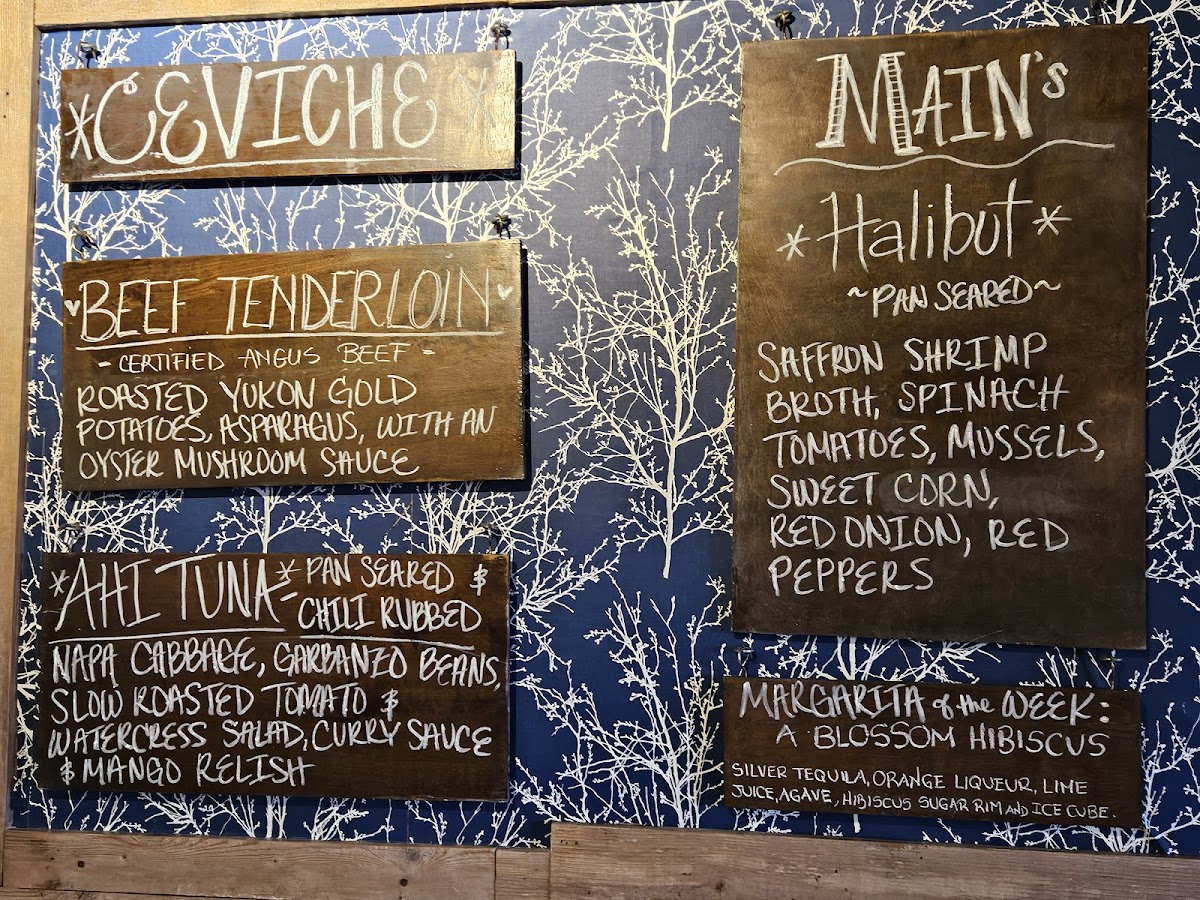 *CEVICHE*
BEEF TENDERLOIN
- CERTIFIED ANGUS BEEF -
ROASTED YUKON GOLD
POTATOES, ASPARAGUS, WITH AN
OYSTER MUSHROOM SAUCE
*AHI TUNA* - PAN SEARED &
CHILI RUBBED
NAPA CABBAGE, GARBANZO BEANS,
SLOW ROASTED TOMATO &
WATERCRESS SALAD, CURRY SAUCE
& MANGO RELISH
MAIN'S
* Halibut *
~PAN SEARED~
SAFFRON SHRIMP
BROTH, SPINACH
TOMATOES, MUSSELS,
SWEET CORN,
RED ONION, RED
PEPPERS
MARGARITA of the WEEK:
A BLOSSOM HIBISCUS
SILVER TEQUILA, ORANGE LIQUEUR, LIME
JUICE, AGAVE, HIBISCUS SUGAR RIM AND ICE CUBE.